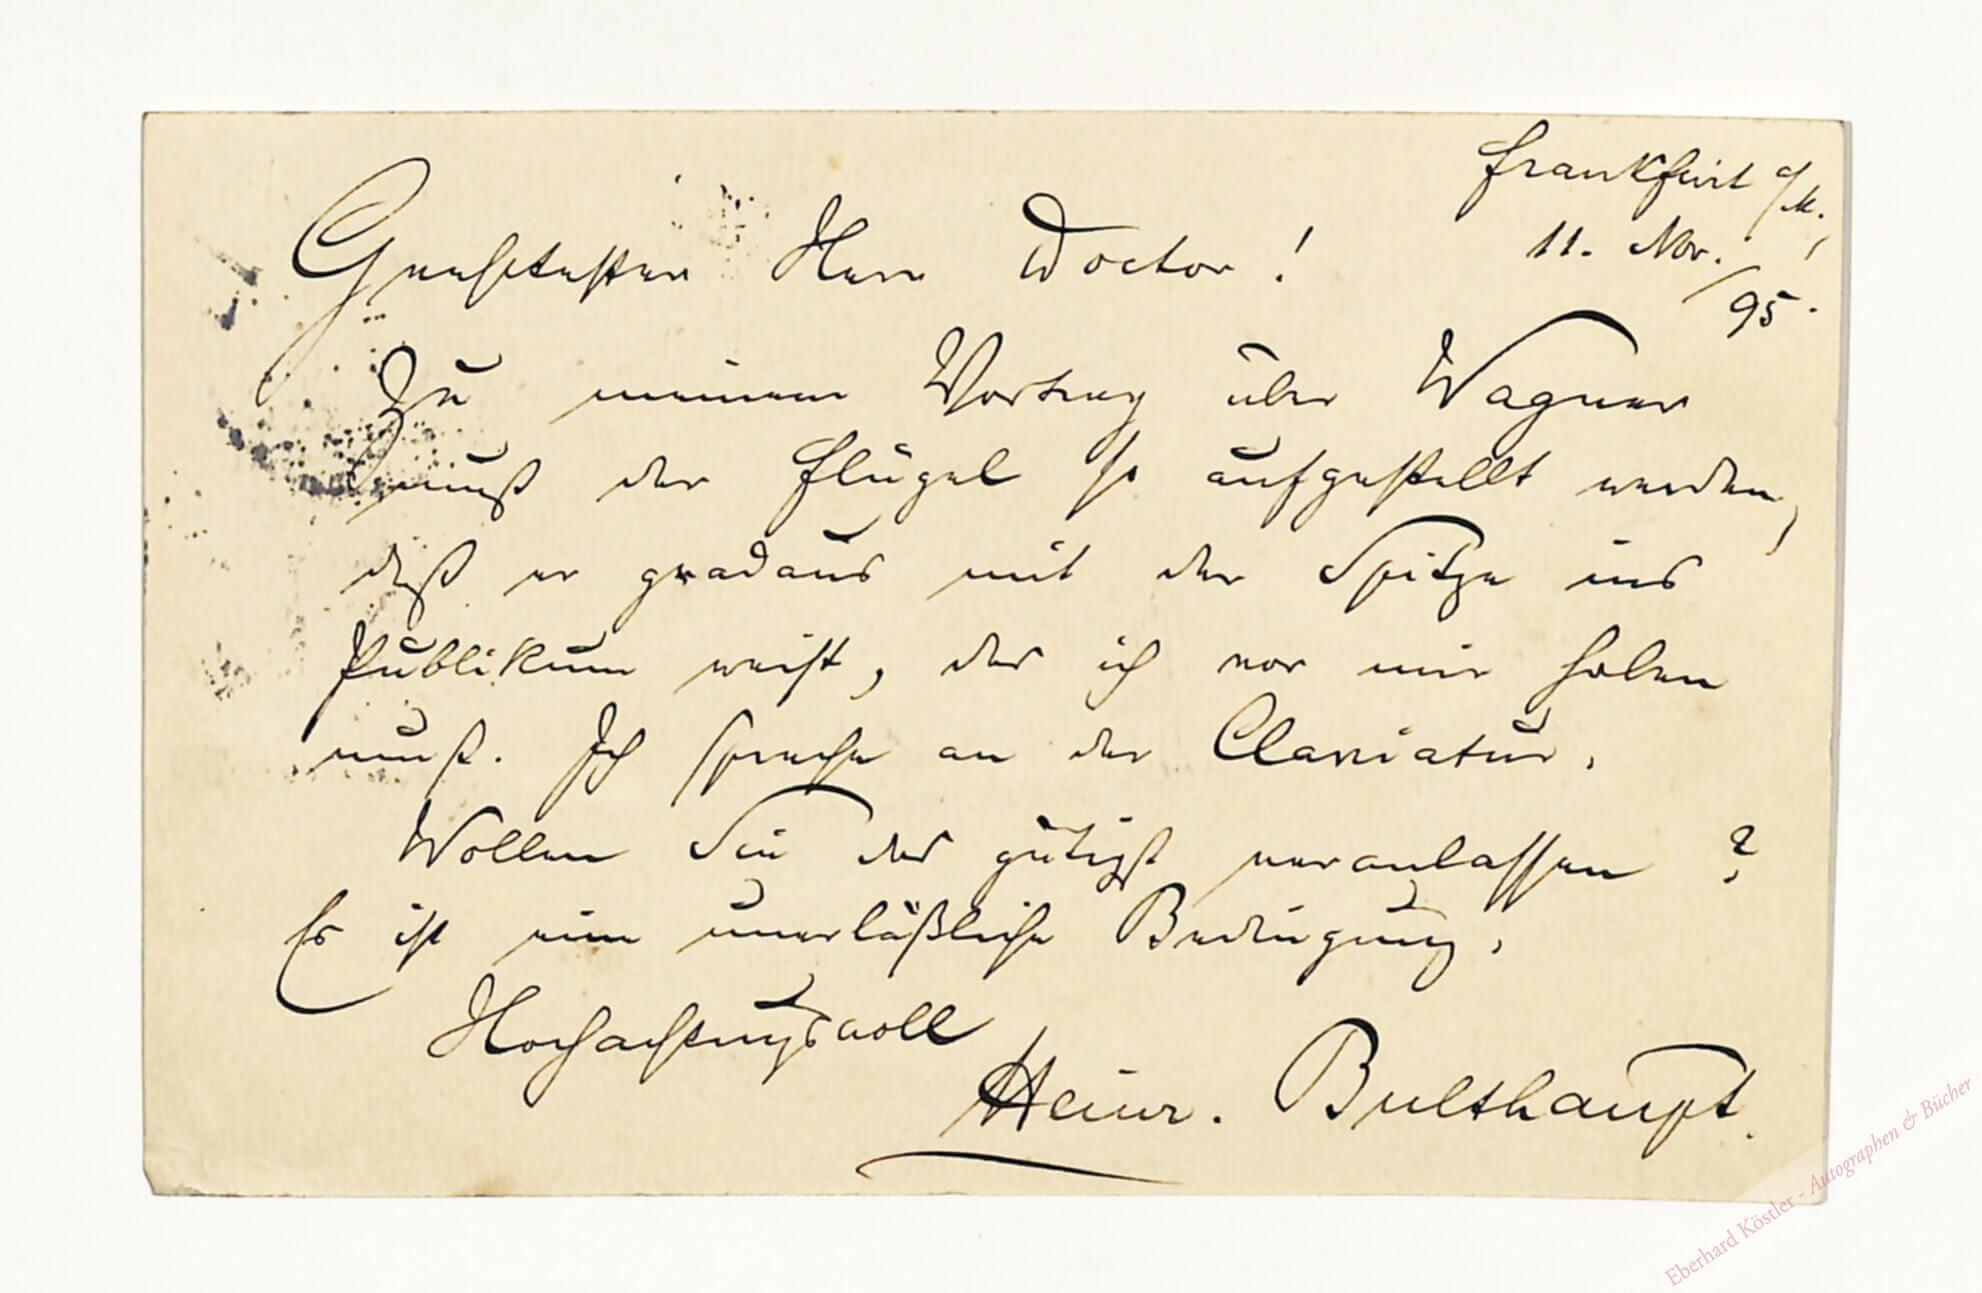 Frankfurt a/M.,
11. Nov.
/95.
Geehrtester Herr Doctor!
Zu meinem Vortrag über Wagner
muß der Flügel so aufgestellt werden,
daß er gradaus mit der Spitze ins
Publikum weist, das ich vor mir haben
muß. Ich spreche an der Claviatur.
Wollen Sie das gütigst veranlassen?
Es ist eine unerläßliche Bedingung.
Hochachtungsvoll
Heinr. Bulthaupt.
Eberhard Köstler - Autographen & Bücher